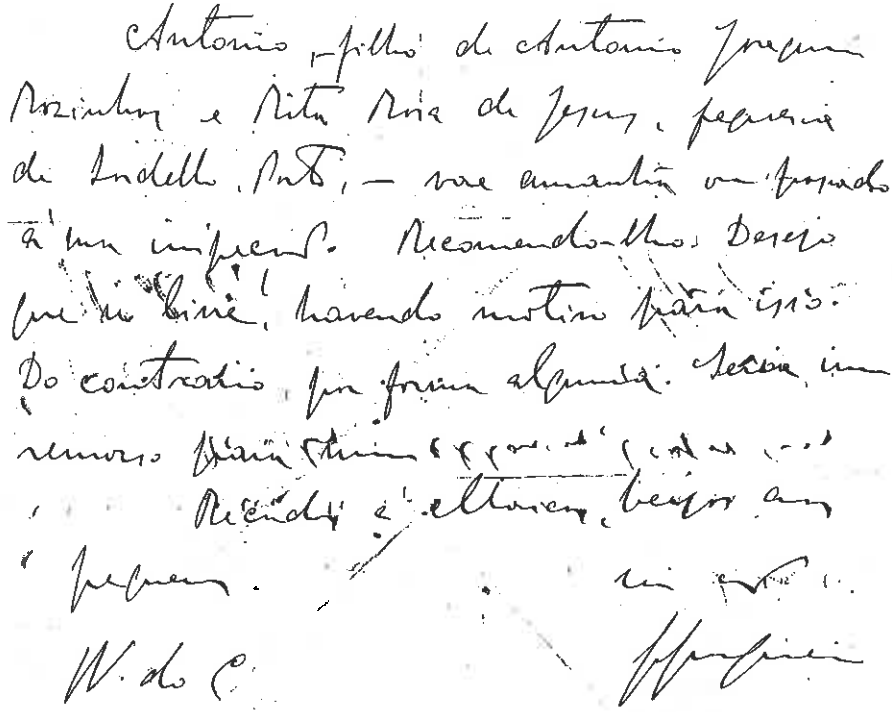 Antonio, filho de Antonio Joaquim
Mozinhos e Rita Rosa de Jesus, freguesia
de Lordello, Porto, — vae amanhã ou passado
á sua inspecção. Recomendo-lh'o. Desejo
que o livre, havendo motivo para isso.
Do contrario por forma alguma. Seria um
remorso para mim
Recados á, beijos aos
pequenos.
N. do C.